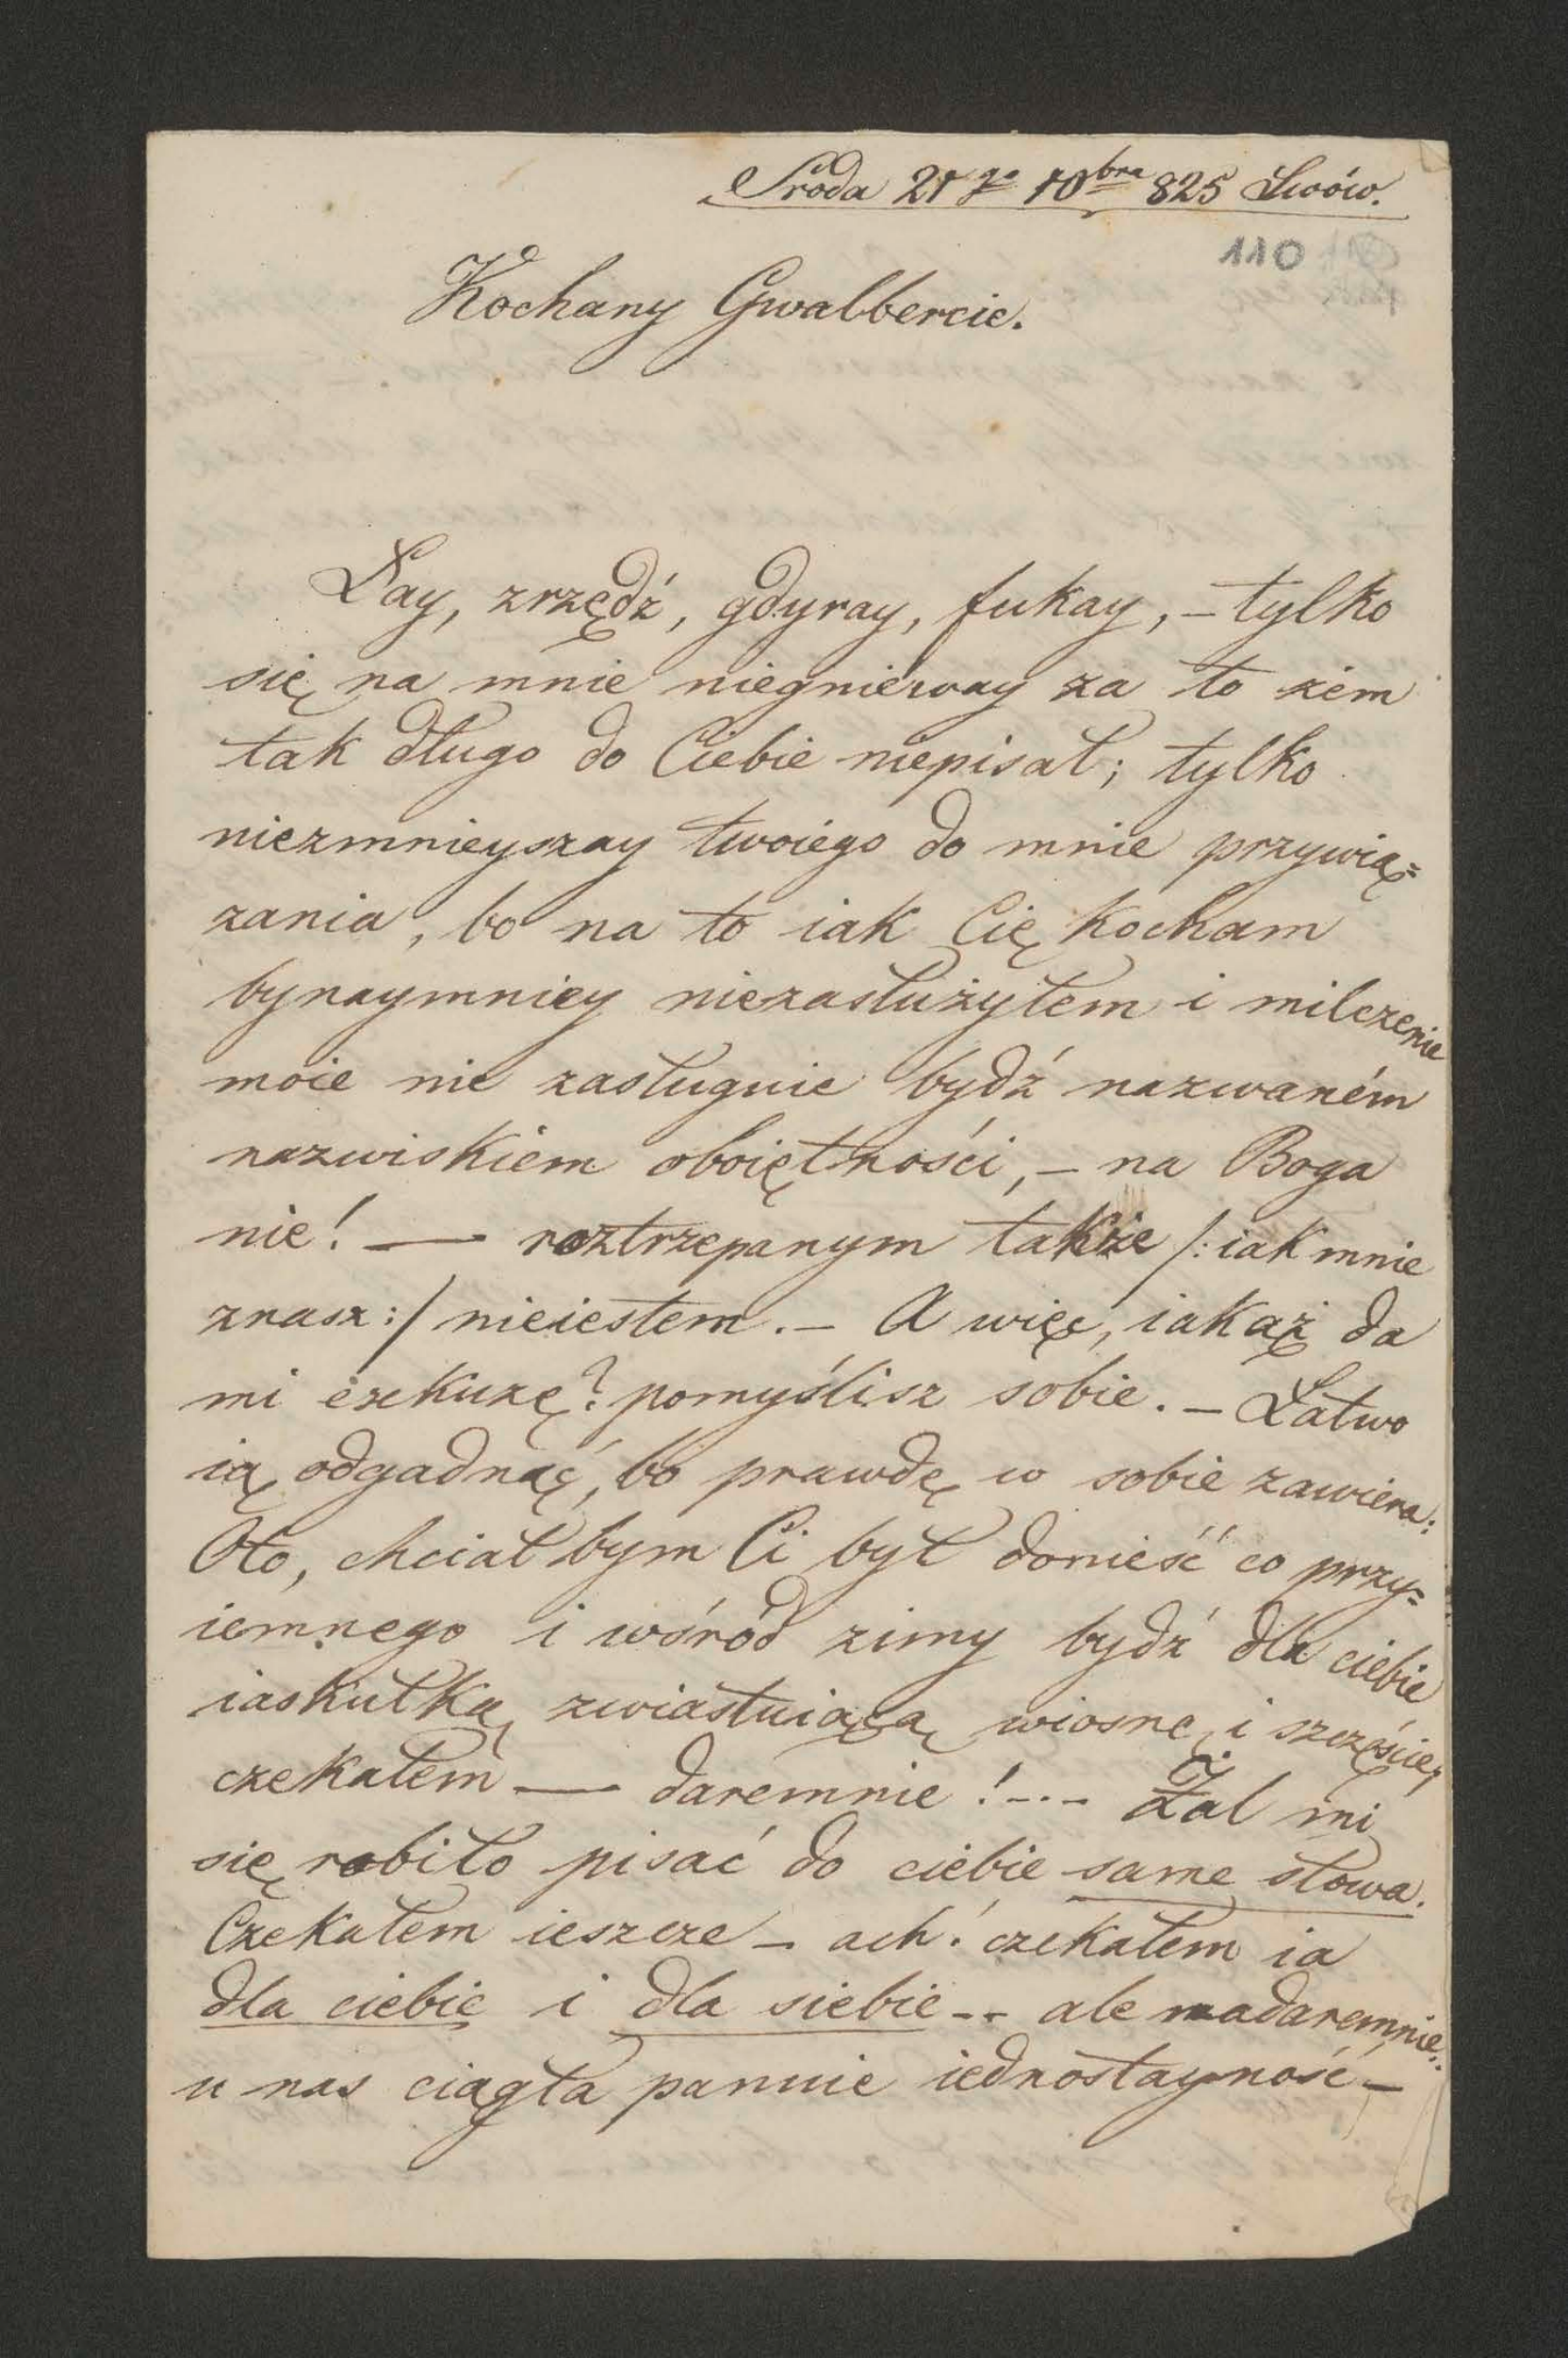 Środa 21go 10bra 825 Lwów.
110
Kochany Gwalbercie.
Łay, zrzędź, gdyray, fukay, – tylko
się na mnie niegniéway za to żem
tak długo do Ciebie niepisał; tylko
niezmnieyszay twoiégo do mnie przywią=
zania, bo na to iak Cię kocham
bynaymniey niezasłużyłem i milczenie
moie nie zasługuie bydź nazwaném
nazwiskiem oboiętności, – na Boga
nie! — roztrzepanym także /: iak mnie
znasz :/ nieiestem. – A więc, iakąż da
mi exkuzę? pomyślisz sobie. – Łatwo
ią odgadnąć, bo prawdę w sobie zawiera:
Oto, chciał bym Ci był donieść co przy=
iemnego i wśród zimy bydź dla ciebie
iaskułką zwiastuiącą wiosnę i szczęście,
czekałem — daremnie! -.- Żal mi
się robiło pisać do ciebie same słowa.
Czekałem ieszcze – ach! czekałem ia
dla ciebie i dla siebie -- ale nadaremnie:
u nas ciągła panuie iednostayność –